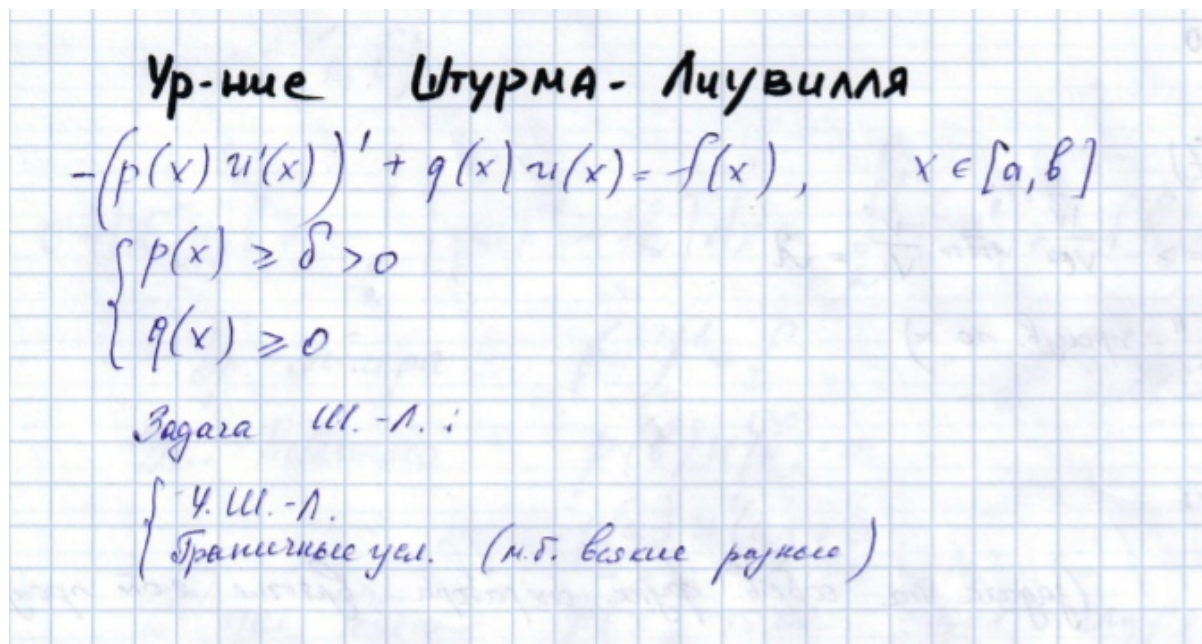 Ур-ние Штурма-Лиувилля
-(p(x) u'(x))' + q(x) u(x) = f(x), x ∈ [a, b]
{ p(x) ≥ δ > 0
q(x) ≥ 0
Задача Ш.-Л.:
{ У. Ш.-Л.
Граничные усл. (м.б. всякие разные)